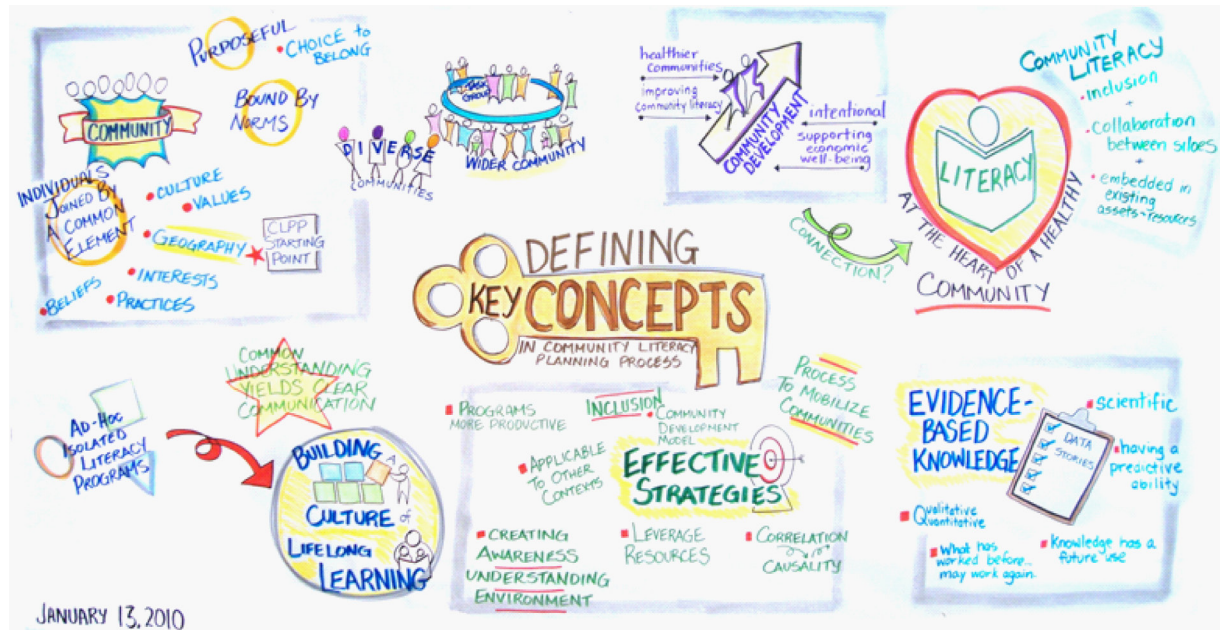 PURPOSEFUL
• CHOICE to
BELONG
COMMUNITY
BOUND BY
NORMS
INDIVIDUALS
JOINED BY
A COMMON
ELEMENT
• CULTURE
• VALUES
• GEOGRAPHY
CLPP
STARTING
POINT
• INTERESTS
• BELIEFS
• PRACTICES
DIVERSE
COMMUNITIES
TASK
GROUP
WIDER COMMUNITY
healthier
communities
improving
community literacy
COMMUNITY
DEVELOPMENT
intentional
supporting
economic
well-being
CONNECTION?
LITERACY
AT THE HEART OF A HEALTHY
COMMUNITY
COMMUNITY
LITERACY
• inclusion
+
• collaboration
between siloes
+
• embedded in
existing
assets + resources
DEFINING
KEY CONCEPTS
IN COMMUNITY LITERACY
PLANNING PROCESS
COMMON
UNDERSTANDING
YIELDS CLEAR
COMMUNICATION
AD-HOC
ISOLATED
LITERACY
PROGRAMS
BUILDING A
CULTURE of
LIFELONG
LEARNING
PROGRAMS
MORE PRODUCTIVE
INCLUSION
• COMMUNITY
DEVELOPMENT
MODEL
PROCESS
TO MOBILIZE
COMMUNITIES
APPLICABLE
TO OTHER
CONTEXTS
EFFECTIVE
STRATEGIES
CREATING
AWARENESS
UNDERSTANDING
ENVIRONMENT
LEVERAGE
RESOURCES
CORRELATION
CAUSALITY
EVIDENCE-
BASED
KNOWLEDGE
DATA
STORIES
scientific
having a
predictive
ability
Qualitative
Quantitative
What has
worked before...
may work again.
Knowledge has a
future use
JANUARY 13, 2010